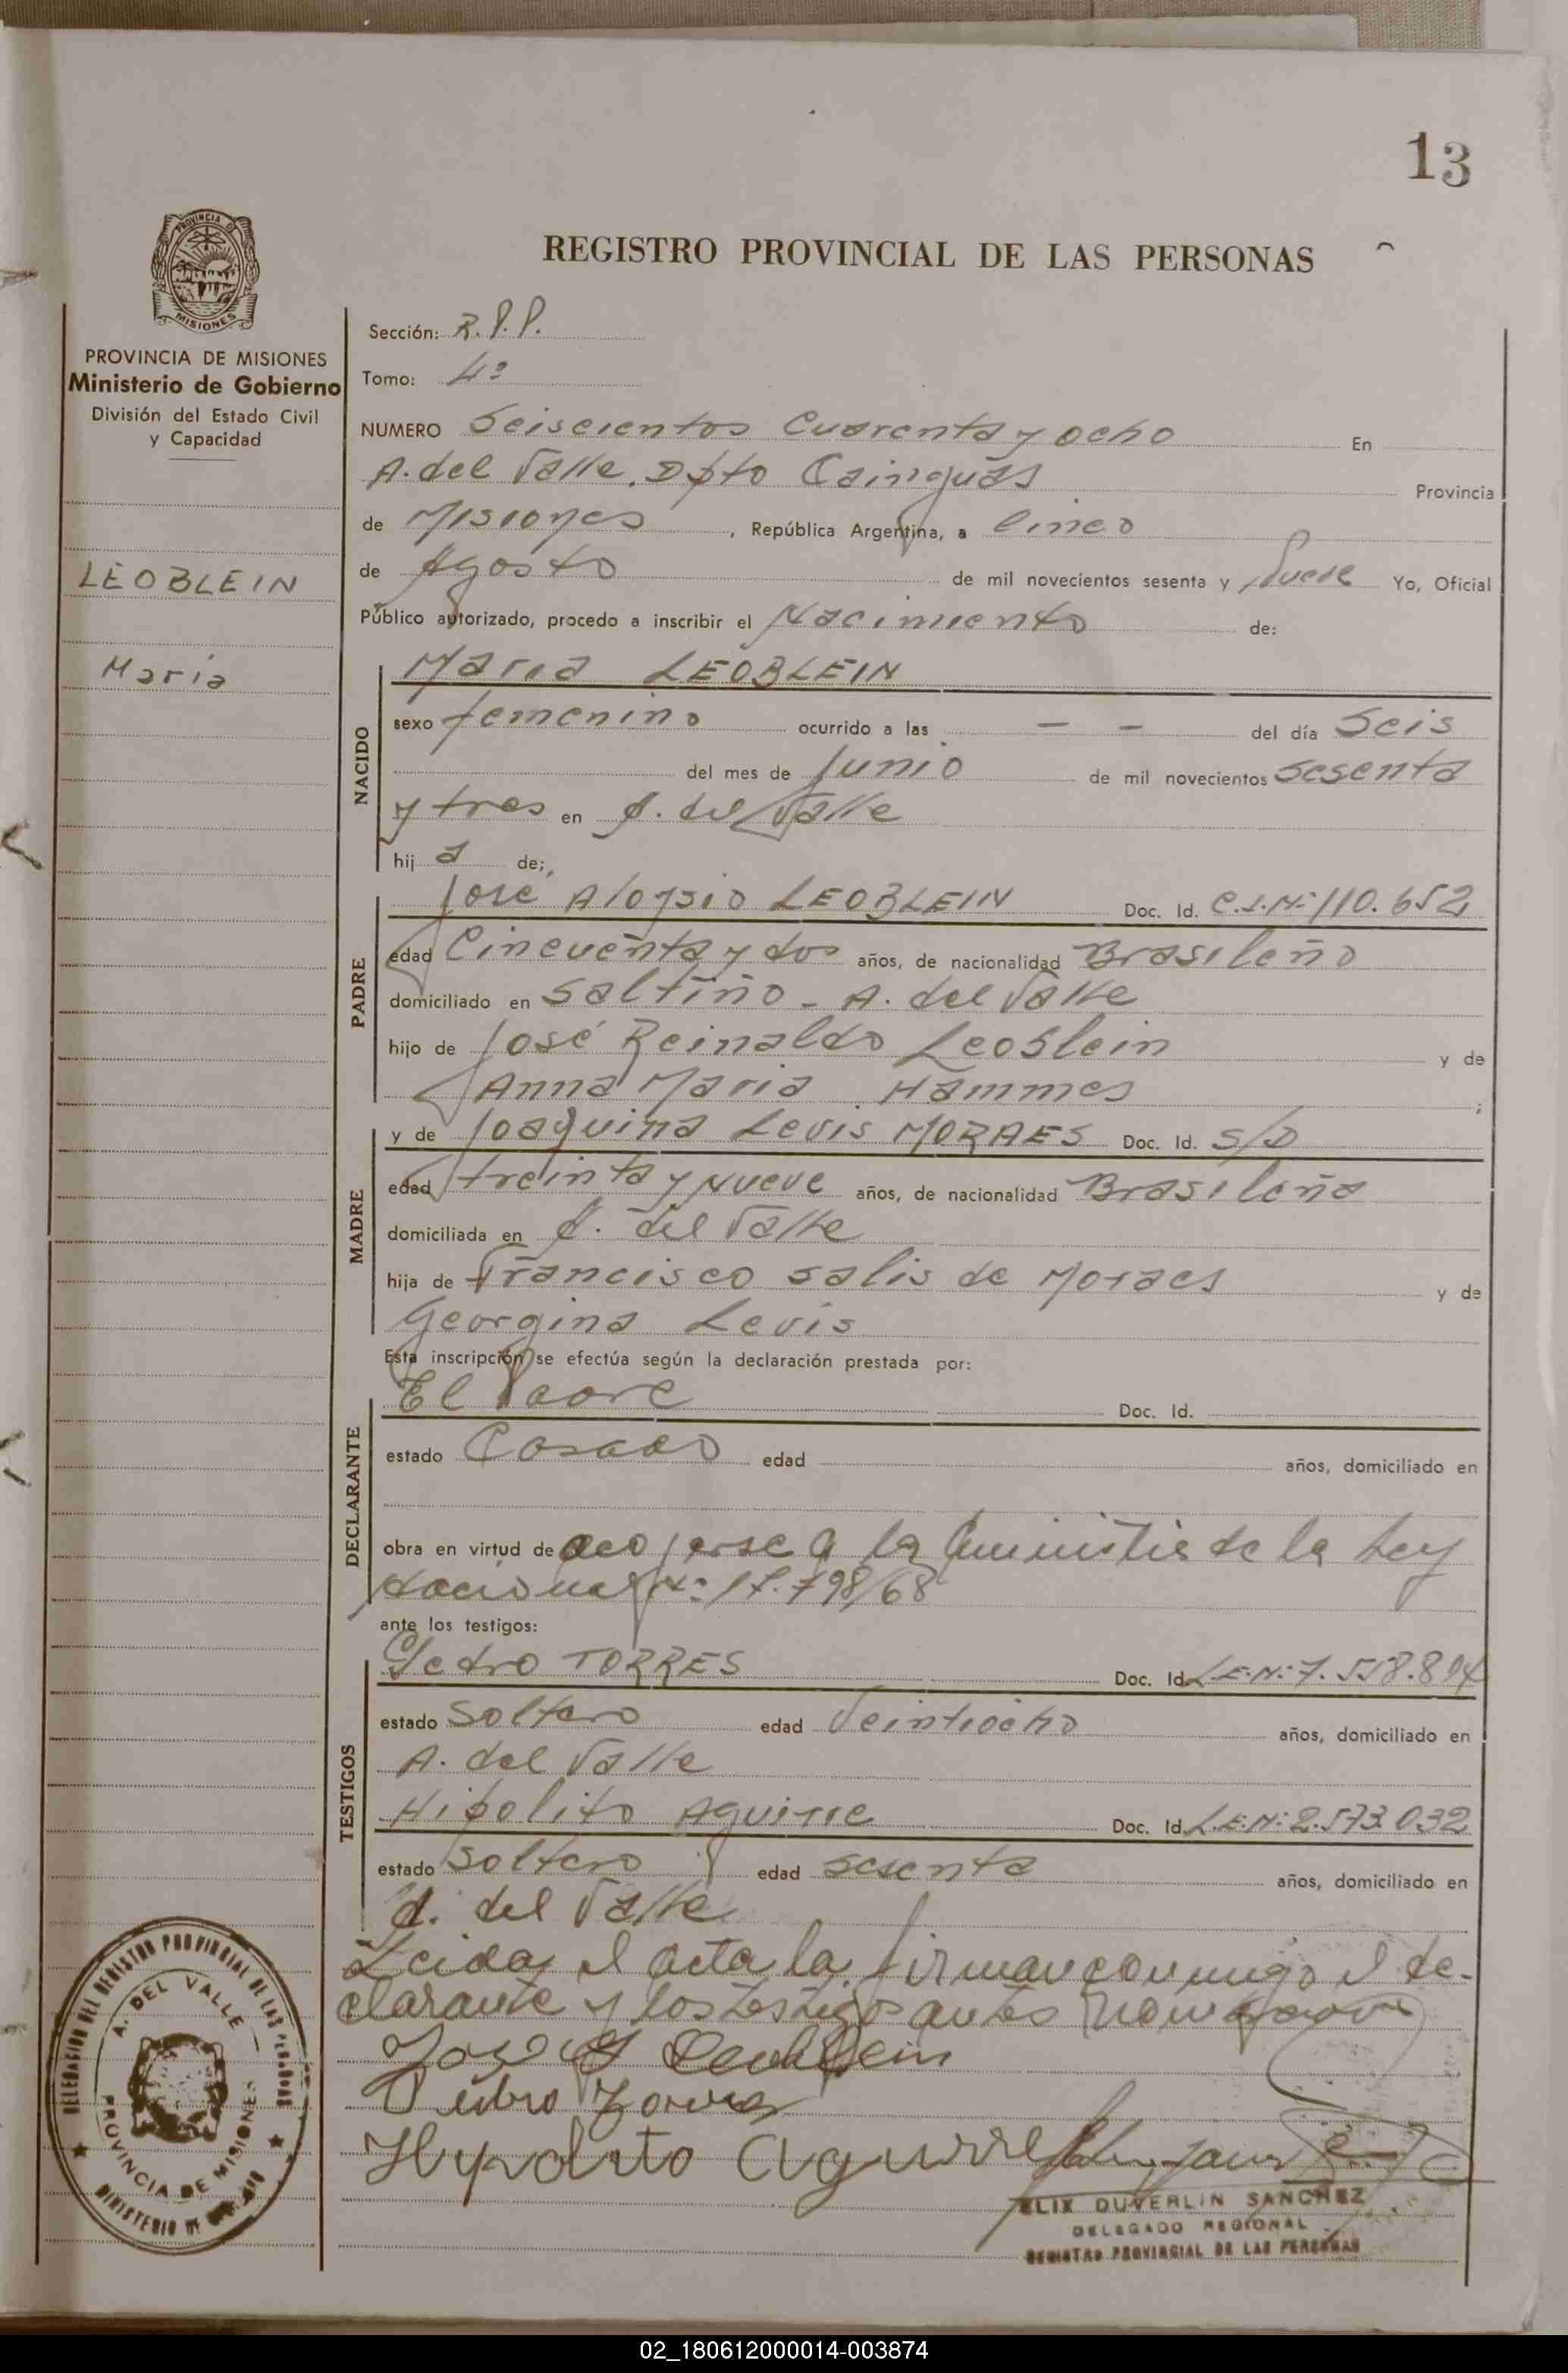 13
PROVINCIA DE
MISIONES
REGISTRO PROVINCIAL DE LAS PERSONAS
PROVINCIA DE MISIONES
Ministerio de Gobierno
División del Estado Civil
y Capacidad
LEOBLEIN
Maria
Sección: R.P.P.
Tomo: 4º
NUMERO Seiscientos Cuarenta y ocho En
A. del Valle. Dpto Cainguás Provincia
de Misiones, República Argentina, a Cinco
de Agosto de mil novecientos sesenta y Nueve Yo, Oficial
Público autorizado, procedo a inscribir el Nacimiento de:
NACIDO
Maria LEOBLEIN
sexo femenino ocurrido a las - - del día Seis
del mes de Junio de mil novecientos sesenta
y tres en A. del Valle
hij a de:
PADRE
José Aloysio LEOBLEIN Doc. Id. C.I.Nº 110.652
edad Cincuenta y dos años, de nacionalidad Brasileño
domiciliado en Saltiño - A. del Valle
hijo de José Reinaldo Leoblein y de
Anna Maria Hammes ;
MADRE
y de Joaquina Levis MORAES Doc. Id. S/D
edad treinta y Nueve años, de nacionalidad Brasileña
domiciliada en A. del Valle
hija de Francisco Salis de Moraes y de
Georgina Levis
Esta inscripción se efectúa según la declaración prestada por:
DECLARANTE
El Padre Doc. Id.
estado Casado edad años, domiciliado en
obra en virtud de acojerse a la Aministia de la Ley
Nacional Nº 17.798/68
ante los testigos:
TESTIGOS
Pedro TORRES Doc. Id. L.E.Nº 7.558.894
estado Soltero edad Veintiocho años, domiciliado en
A. del Valle
Hipolito Aguirre Doc. Id. L.E.Nº 2.573.032
estado Soltero edad sesenta años, domiciliado en
A. del Valle
Leida el acta la firman conmigo el de-
clarante y los testigos antes
Jose A Leoblein
Pedro Torres
Hypolito Aguirre
DELEGACION DEL REGISTRO PROVINCIAL DE LAS PERSONAS
A. DEL VALLE
PROVINCIA DE MISIONES
MINISTERIO DE GOBIERNO
ELIX DUVERLIN SANCHEZ
DELEGADO REGIONAL
REGISTRO PROVINCIAL DE LAS PERSONAS
02_180612000014-003874